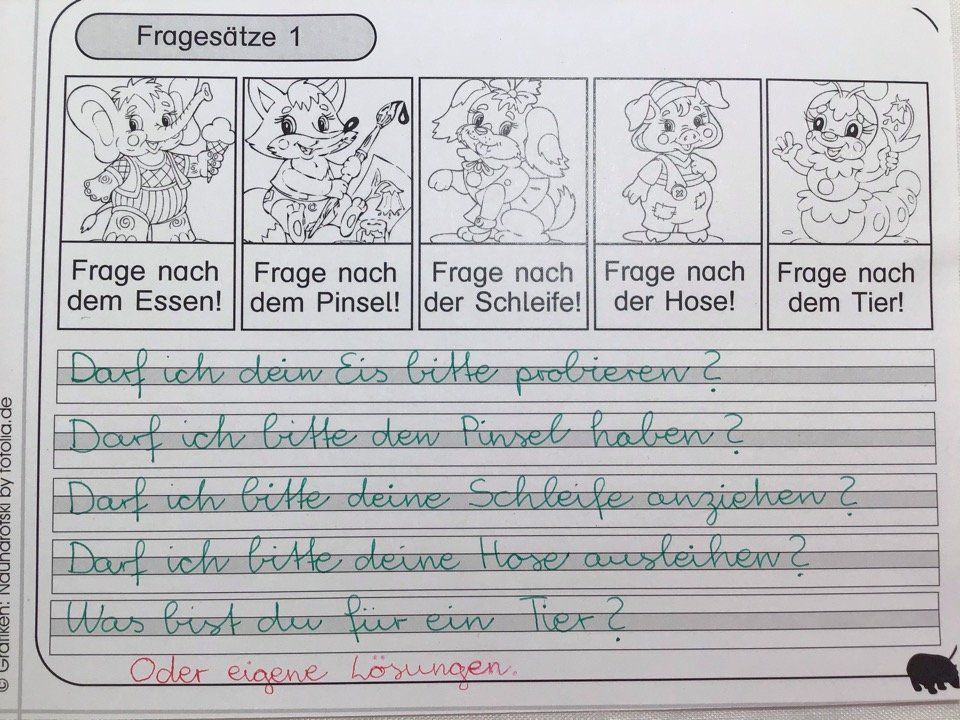 Fragesätze 1
Frage nach dem Essen!
Frage nach dem Pinsel!
Frage nach der Schleife!
Frage nach der Hose!
Frage nach dem Tier!
Darf ich dein Eis bitte probieren?
Darf ich bitte den Pinsel haben?
Darf ich bitte deine Schleife anziehen?
Darf ich bitte deine Hose ausleihen?
Was bist du für ein Tier?
Oder eigene Lösungen.
© Grafiken: Naundrofski by fotolia.de